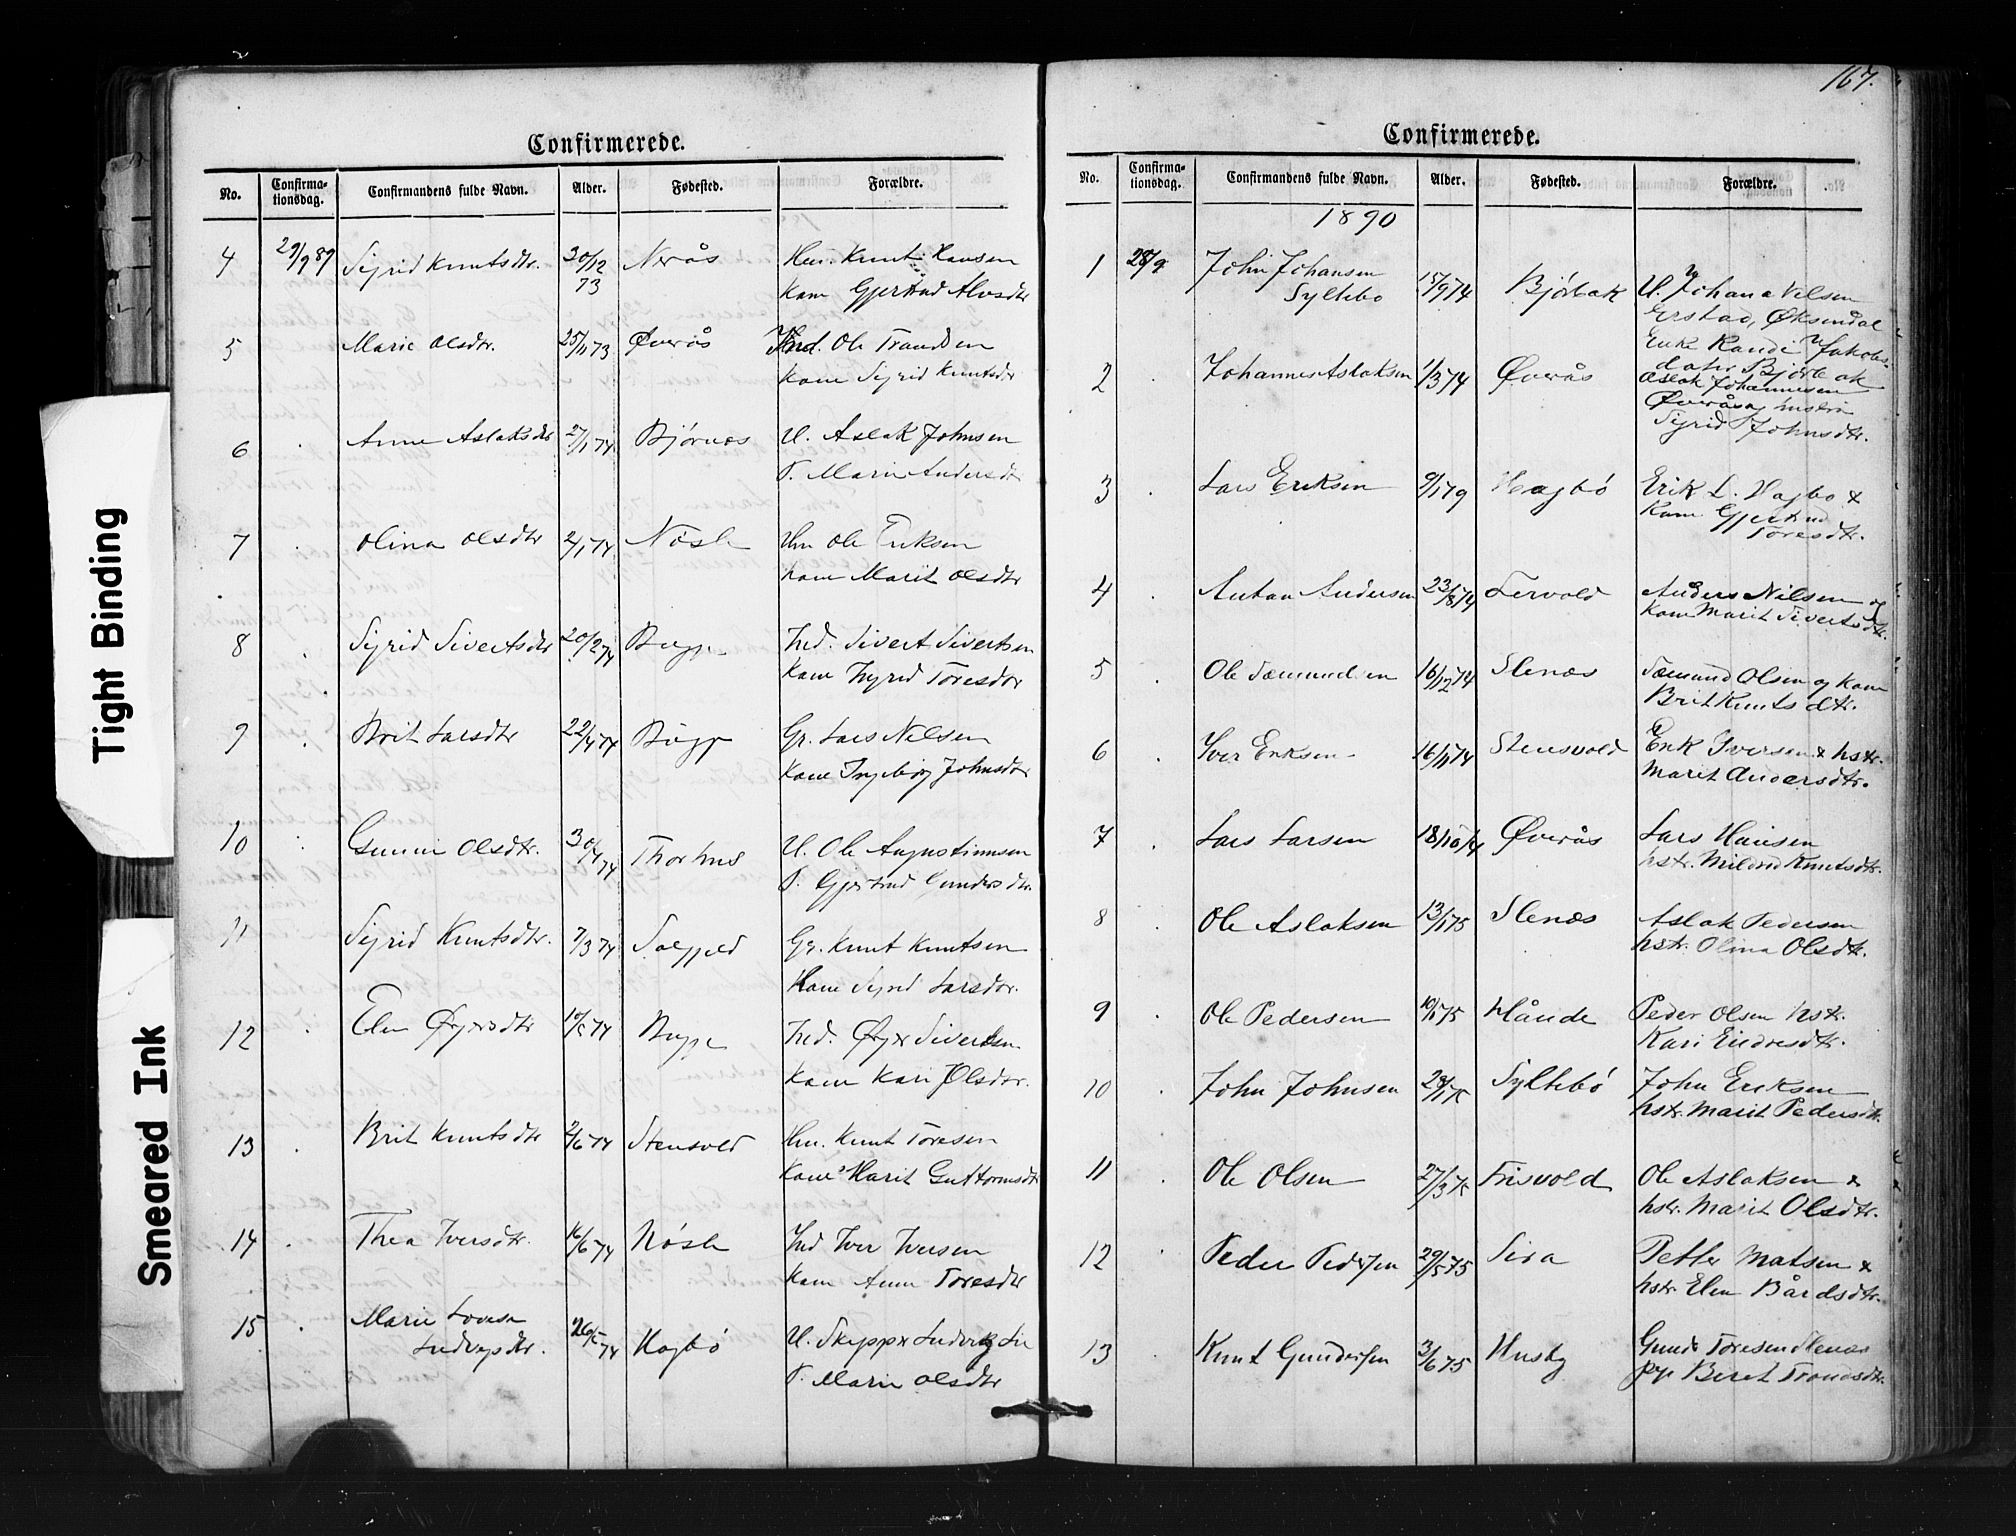 Tight Binding
Smeared Ink
Confirmerede.
No. Confirma-tionsdag. Confirmandens fulde Navn. Alder. Fødested. Forældre.
4 29/9 89 Sigrid Knutsdtr. 30/12 73 Nerås Hm. Knut Hansen
Kone Gjertrud Alvsdtr
5 Marie Olsdtr. 25/11 73 Øverås Ole Trondsen
Kone Sigrid Knutsdtr
6 Anne Aslaksdtr 27/1 74 Bjørnås U. Aslak Johnsen
P. Marie Andersdtr
7 Olina Olsdtr 2/1 74 Nøsle Hm Ole Eriksen
kone Marit Olsdtr
8 Sigrid Sivertsdtr 20/2 74 Bugge Ind. Sivert Sivertsen
Kone Ingrid Toresdtr
9 Brit Larsdtr 22/4 74 Bugge Gr. Lars Nilsen
Kone Ingeborg Johnsdtr
10 Gunni Olsdtr. 30/4 74 Thorhus U. Ole Augustinusen
P. Gjertrud Gundersdtr.
11 Sigrid Knutsdtr. 7/3 74 Gr. Knut Knutsen
Kone Sigrid Larsdtr.
12 Elen 10/5 74 Bugge Ind. Sivertsen
Kone Kari Olsdtr.
13 Brit Knutsdtr 2/6 74 Stensvold Hm. Knut Toresen
Kone Marit Guttormsdtr
14 Thea Iversdtr. 16/6 74 Nøsle Ind Iver Iversen
Kone Anne Toresdtr
15 Marie Lovise
Ludvigsdtr. 26/5 74 Hagbø U. Ludvig
P. Marie Olsdtr
167.
Confirmerede.
No. Confirma-tionsdag. Confirmandens fulde Navn. Alder. Fødested. Forældre.
1890
1 28/9 John Johansen
Syltebø 15/9 74 Bjørbak U. Johan Nilsen
Erstad, Øksendal
Enke Randi Jakobs-
dater Bjørbak
2 Johannes Aslaksen 1/3 74 Øverås Aslak Johannesen
Øverås og hustru
Sigrid Johnsdtr.
3 Lars Eriksen 9/1 79 Hagbø Erik L. Hagbø &
Kone Gjertrud
Toresdtr.
4 Anton Andersen 23/8 74 Lervold Anders Nilsen og
Kone Marit Sivertsdtr.
5 Ole Sæmundsen 16/12 74 Slenæs Sæmund Olsen og Kone
Brit Knutsdtr.
6 Iver Eriksen 16/11 74 Stensvold Erik Iversen & hstr.
Marit Andersdtr.
7 Lars Larsen 18/10 74 Øverås Lars Hansen
hstr. Mildrid Knutsdtr.
8 Ole Aslaksen 13/1 75 Slenæs Aslak Pedersen
hstr. Olina Olsdtr.
9 Ole Pedersen 10/1 75 Hånde Peder Olsen hstr.
Kari Endresdtr.
10 John Johnsen 28/1 75 Syltebø John Eriksen
hstr. Marit Pedersdtr.
11 Ole Olsen 27/3 75 Frisvold Ole Aslaksen &
hstr. Marit Olsdtr.
12 Peder Pedersen 29/5 75 Sira Petter Matsen &
hstr. Elen Bårdsdtr.
13 Knut Gundersen 3/6 75 Husby Gunder Toresen Slenæs
pige Beret Trondsdtr.